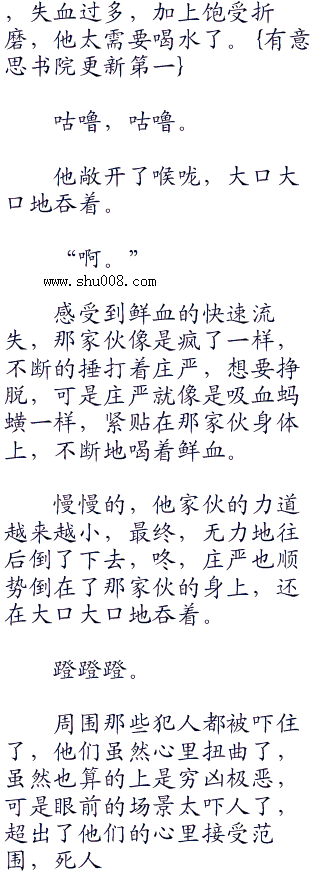 ，失血过多，加上饱受折
磨，他太需要喝水了。{有意
思书院更新第一}
咕噜，咕噜。
他敞开了喉咙，大口大
口地吞着。
“啊。”
www.shu008.com
感受到鲜血的快速流
失，那家伙像是疯了一样，
不断的捶打着庄严，想要挣
脱，可是庄严就像是吸血蚂
蟥一样，紧贴在那家伙身体
上，不断地喝着鲜血。
慢慢的，他家伙的力道
越来越小，最终，无力地往
后倒了下去，咚，庄严也顺
势倒在了那家伙的身上，还
在大口大口地吞着。
蹬蹬蹬。
周围那些犯人都被吓住
了，他们虽然心里扭曲了，
虽然也算的上是穷凶极恶，
可是眼前的场景太吓人了，
超出了他们的心里接受范
围，死人